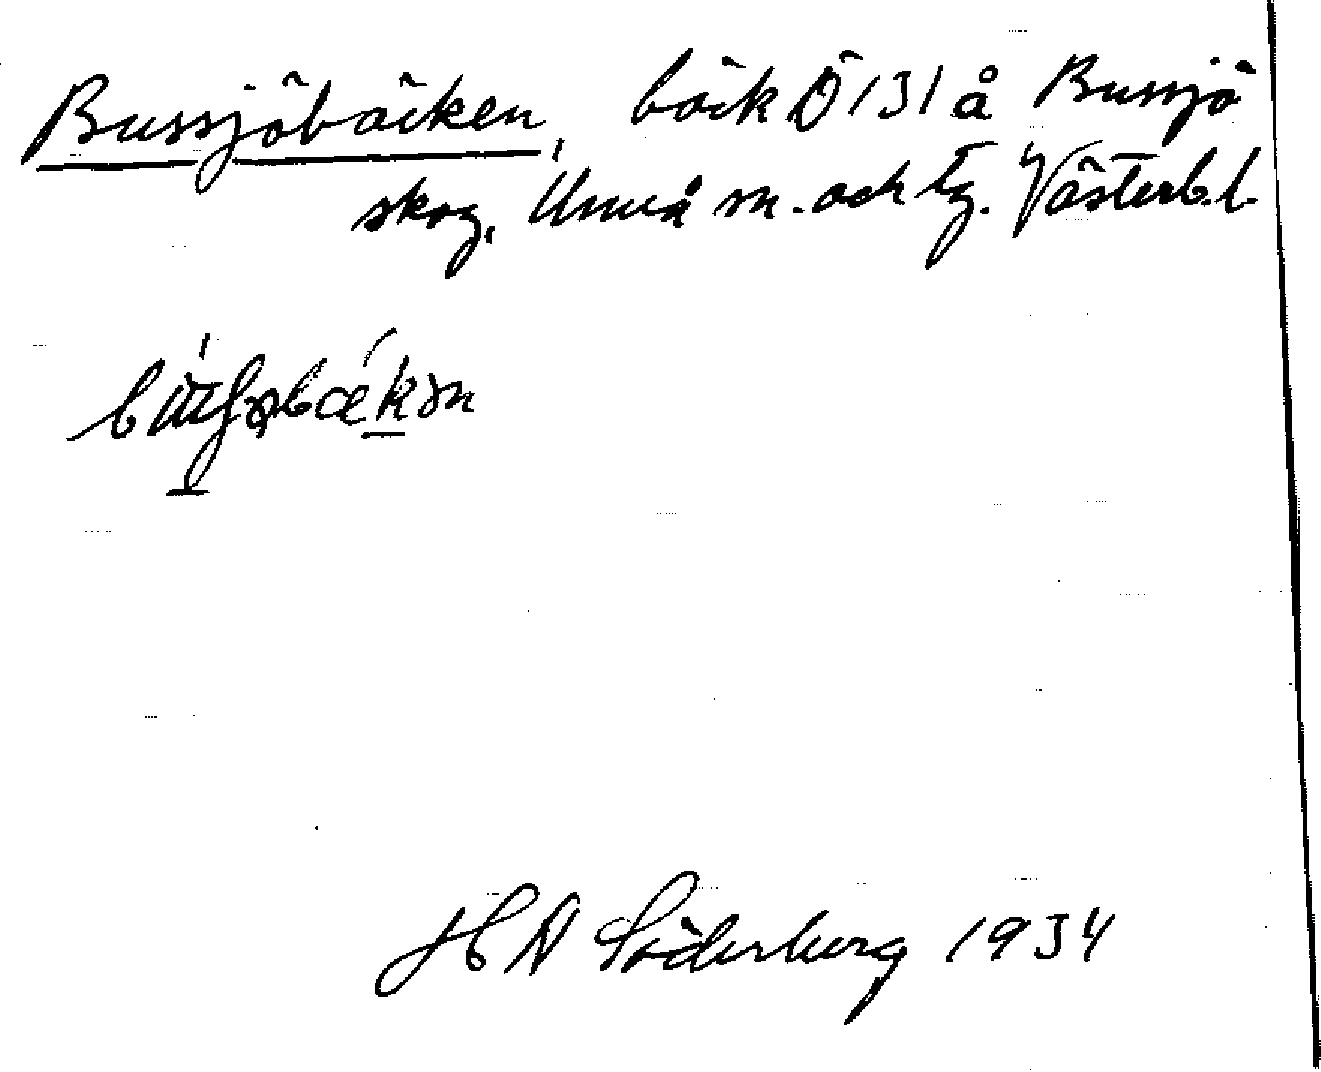 Bussjöbäcken, bäck Ö 131 å Bussjö
skog, Umeå sn. och tg. Västerb. l.
H D Söderberg 1934